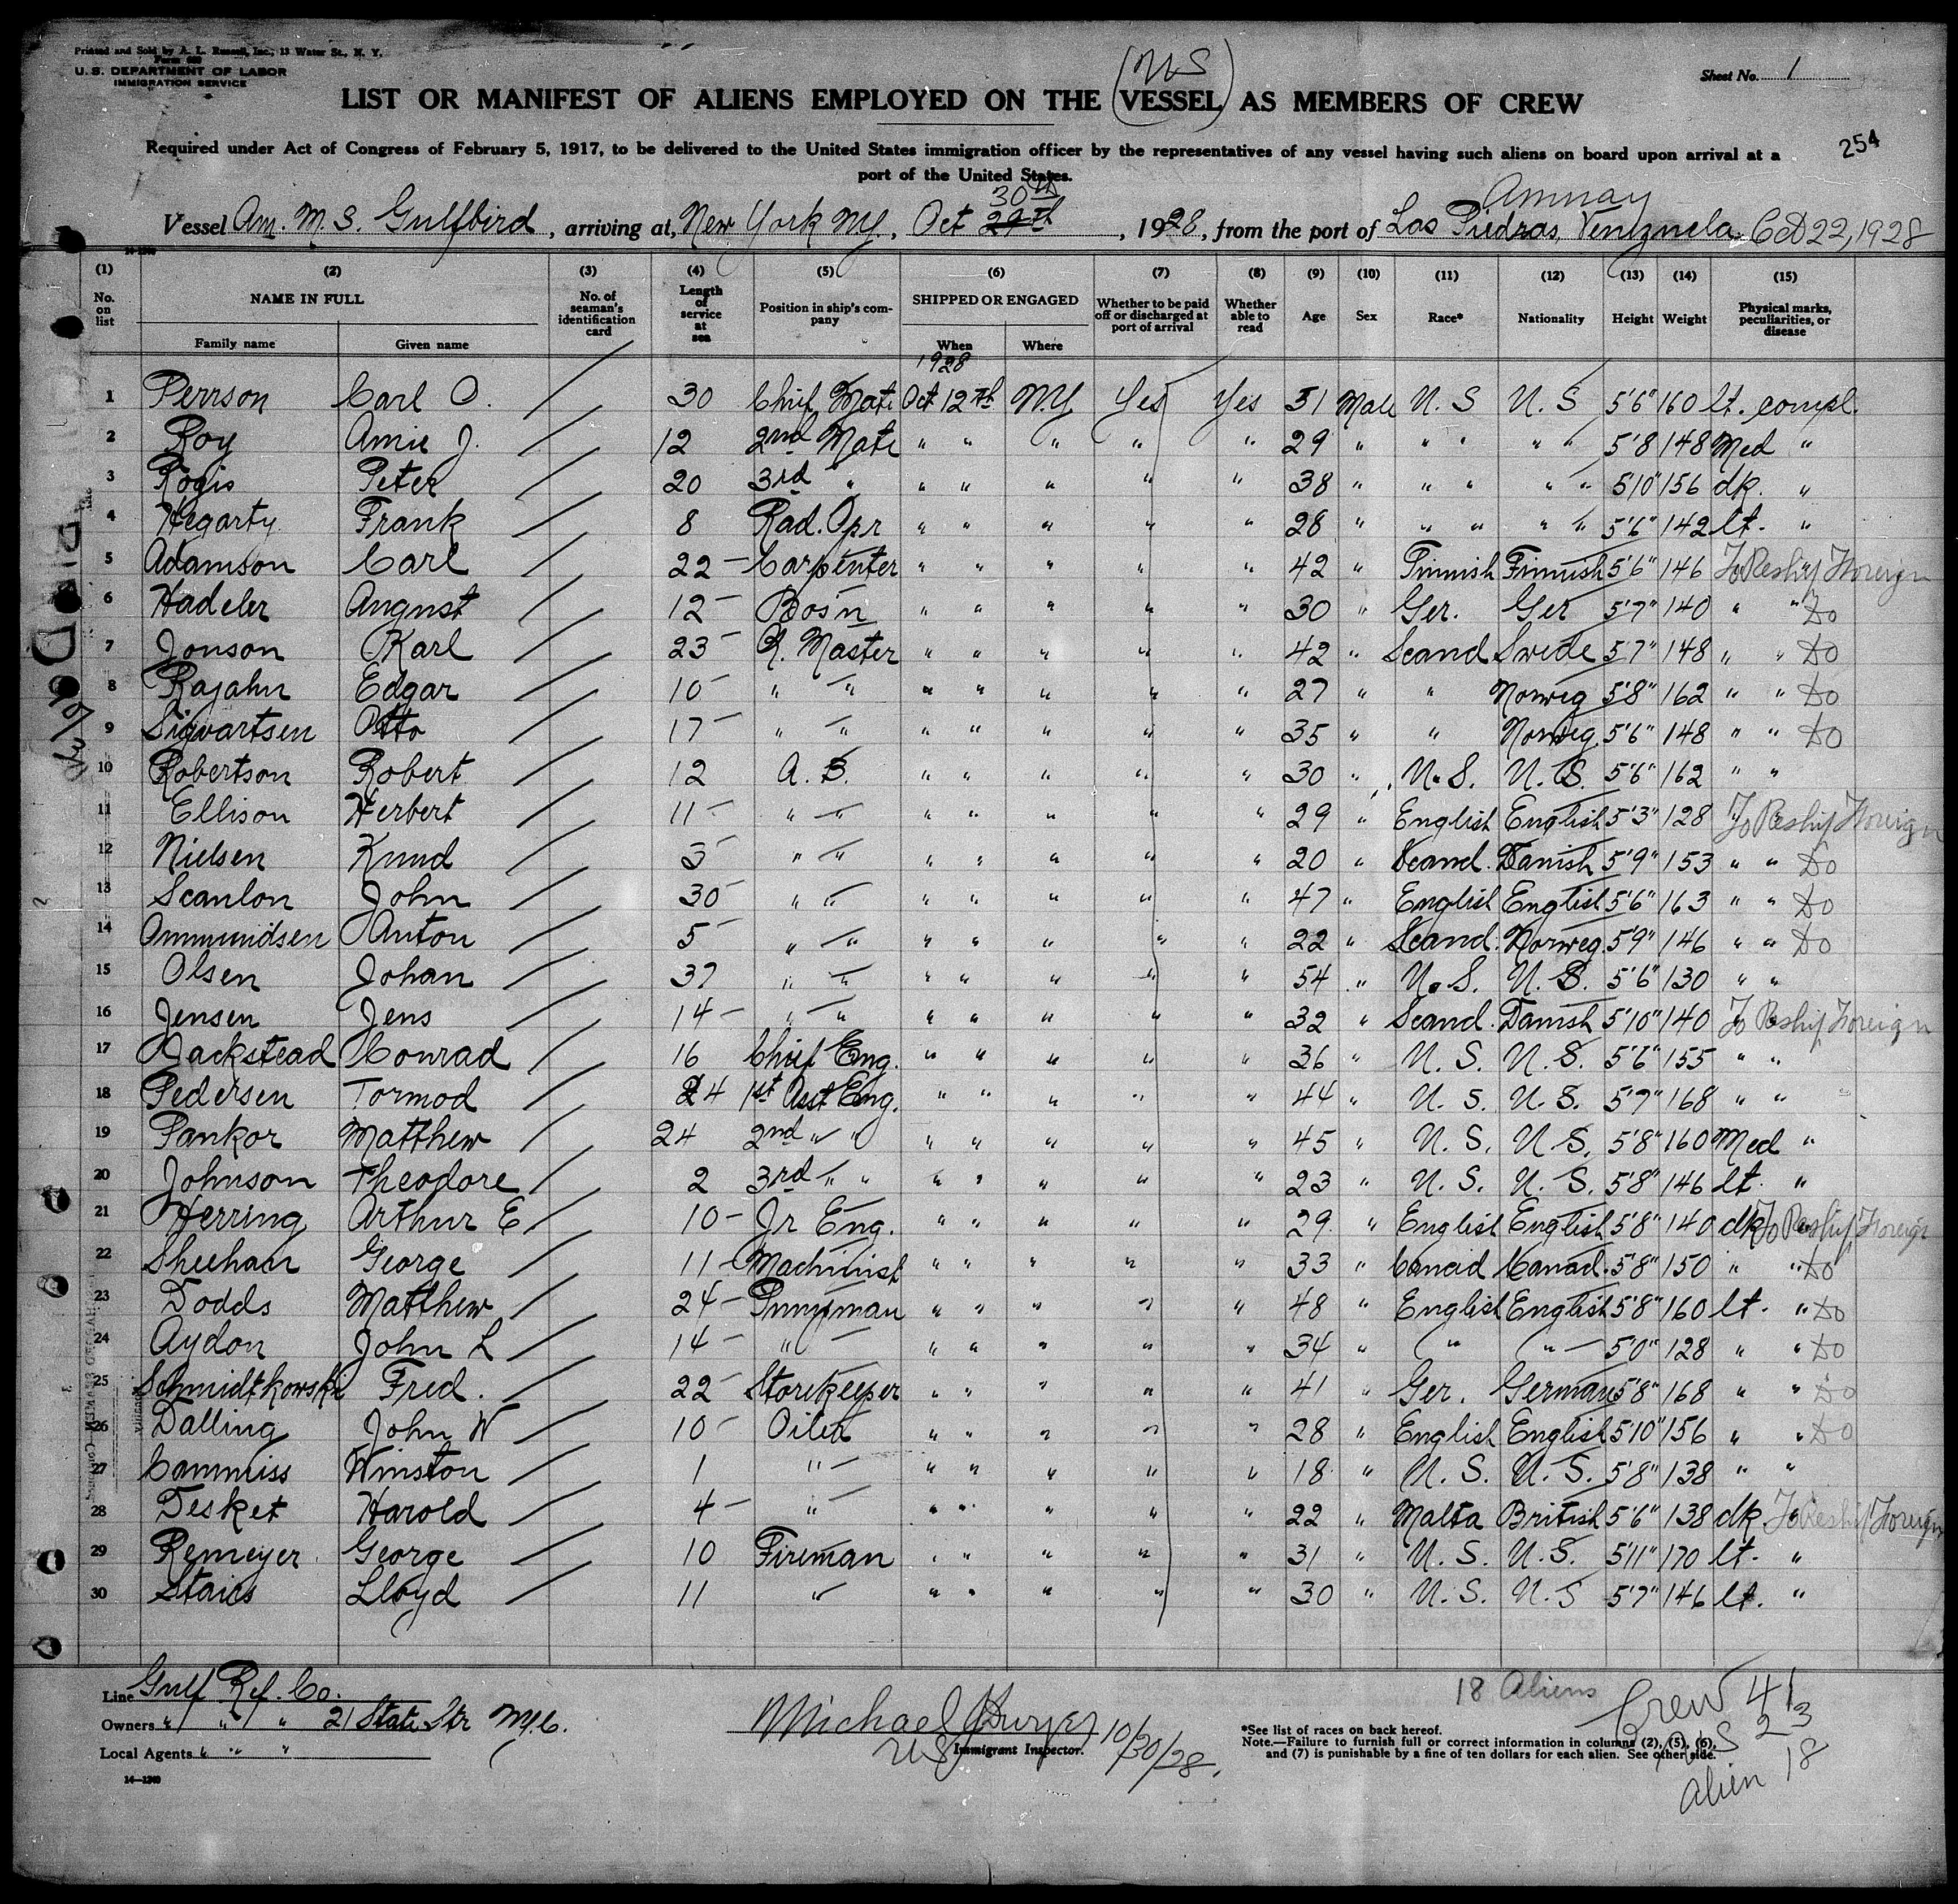 Printed and Sold by A. L. Russell, Inc., 13 Water St., N. Y.
U.S. DEPARTMENT OF LABOR
IMMIGRATION SERVICE
Sheet No. 1
(US)
LIST OR MANIFEST OF ALIENS EMPLOYED ON THE VESSEL AS MEMBERS OF CREW
254
Required under Act of Congress of February 5, 1917, to be delivered to the United States immigration officer by the representatives of any vessel having such aliens on board upon arrival at a
port of the United States.
30th
Vessel Am. M. S. Gulfbird, arriving at, New York NY., Oct 29th, 1928, from the port of Las Piedras, Venezuela. Oct 22, 1928
(1) (2) (3) (4) (5) (6) (7) (8) (9) (10) (11) (12) (13) (14) (15)
No. on list NAME IN FULL No. of seaman's identification card Length of service at sea Position in ship's company SHIPPED OR ENGAGED Whether to be paid off or discharged at port of arrival Whether able to read Age Sex Race* Nationality Height Weight Physical marks, peculiarities, or disease
Family name Given name When Where
1928
1 Perrson Carl O. 30 Chief Mate Oct 12th N.Y Yes Yes 51 Male U. S U. S 5'6" 160 lt. compl.
2 Roy Amie J. 12 2nd Mate " " " " " 29 " " " " " 5'8 148 Med "
3 Rogis Peter 20 3rd " " " " " " 38 " " " " " 5'10" 156 dk. "
4 Hegarty Frank 8 Rad. Opr " " " " " 28 " " " " " 5'6" 142 lt. "
5 Adamson Carl 22 - Carpenter " " " " " 42 " Finnish Finnish 5'6" 146 To Reship Foreign
6 Hadeler August 12 - Bos'n " " " " " 30 " Ger. Ger 5'7" 140 " " Do
7 Jonson Karl 23 - Q. Master " " " " " 42 " Scand Swede 5'7" 148 " " Do
8 Rajahn Edgar 10 - " " " " " " " 27 " " Norweg 5'8" 162 " " Do
9 Sigvartsen Otto 17 - " " " " " " " 35 " " Norweg. 5'6" 148 " " Do
10 Robertson Robert 12 A. B. " " " " " 30 " U. S. U. S. 5'6" 162 " "
11 Ellison Herbert 11 - " " " " " " " 29 " English English 5'3" 128 To Reship Foreign
12 Nielsen Knud 3 - " " " " " " " 20 " Scand. Danish 5'9" 153 " " Do
13 Scanlon John 30 - " " " " " " " 47 " English English 5'6" 163 " " Do
14 Ommundsen Anton 5 - " " " " " " " 22 " Scand. Norweg. 5'9" 146 " " Do
15 Olsen Johan 37 " " " " " " " 54 " U. S. U. S. 5'6" 130 " "
16 Jensen Jens 14 - " " " " " " " 32 " Scand. Danish 5'10" 140 To Reship Foreign
17 Hackstead Conrad 16 Chief Eng. " " " " " 36 " U. S. U. S. 5'6" 155 " "
18 Pedersen Tormod 24 1st Asst Eng. " " " " " 44 " U. S. U. S. 5'7" 168 " "
19 Pankor Matthew 24 2nd " " " " " " " 45 " U. S. U. S. 5'8" 160 Med "
20 Johnson Theodore 2 3rd " " " " " " " 23 " U. S. U. S. 5'8" 146 lt. "
21 Herring Arthur E 10 - Jr Eng. " " " " " 29 " English English 5'8" 140 dk To Reship Foreign
22 Sheehan George 11 - Machinist " " " " " 33 " Canad Canad. 5'8" 150 " " Do
23 Dodds Matthew 24 - Pumpman " " " " " 48 " English English 5'8" 160 lt. " Do
24 Aydon John L 14 - " " " " " " 34 " " " 5'0" 128 " " Do
25 Schmidtkowski Fred. 22 - Storekeeper " " " " " 41 " Ger. German 5'8" 168 " " Do
26 Dalling John W 10 - Oiler " " " " " 28 " English English 5'10" 156 " " Do
27 Cammiss Winston 1 " " " " " " 18 " U. S. U. S. 5'8" 138 " "
28 Tesket Harold 4 - " " " " " " 22 " Malta British 5'6" 138 dk To Reship Foreign
29 Remeyer George 10 Fireman " " " " " 31 " U. S. U. S. 5'11" 170 lt. "
30 Stairs Lloyd 11 " " " " " " 30 " U. S. U. S 5'7" 146 lt. "
Line Gulf Ref. Co.
Owners " " " 21 State Str N.Y.C.
Local Agents " " "
14—1240
Michael 10/30/28.
US Immigrant Inspector.
18 Aliens
Crew 41
US 23
Alien 18
*See list of races on back hereof.
Note.—Failure to furnish full or correct information in columns (2), (5), (6), and (7) is punishable by a fine of ten dollars for each alien. See other side.